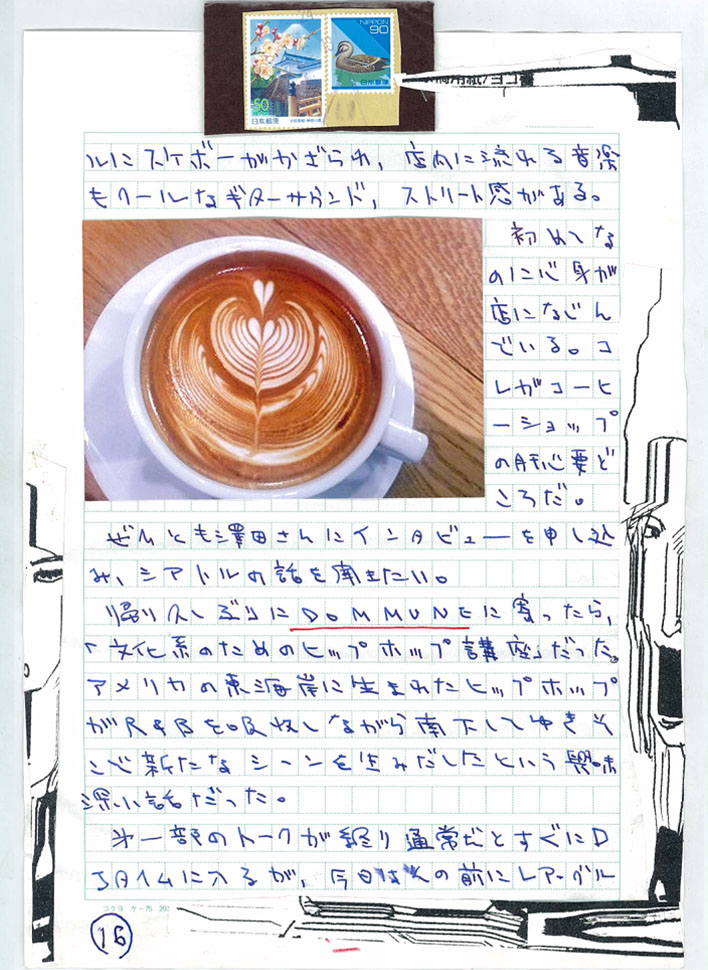 NIPPON
90
50
日本郵便
ルにスケボーがかざられ、店内に流れる音楽
もクールなギターサウンド、ストリート感がある。
初めてな
のに心身が
店になじん
でいる。コ
レガコーヒ
ーショップ
の肝心要ど
ころだ。
ぜひとも澤田さんにインタビューを申し込
み、シアトルの話を聞きたい。
帰り久しぶりにDOMMUNEに寄ったら、
「文化系のためのヒップホップ講座」だった。
アメリカの東海岸に生まれたヒップホップ
がR&Bを吸収しながら南下してゆきそ
こで新たなシーンを生みだしたという興味
深い話だった。
第一部のトークが終り通常だとすぐにD
Jタイムに入るが、今日は の前にレアーグル
コクヨ ケー75
16